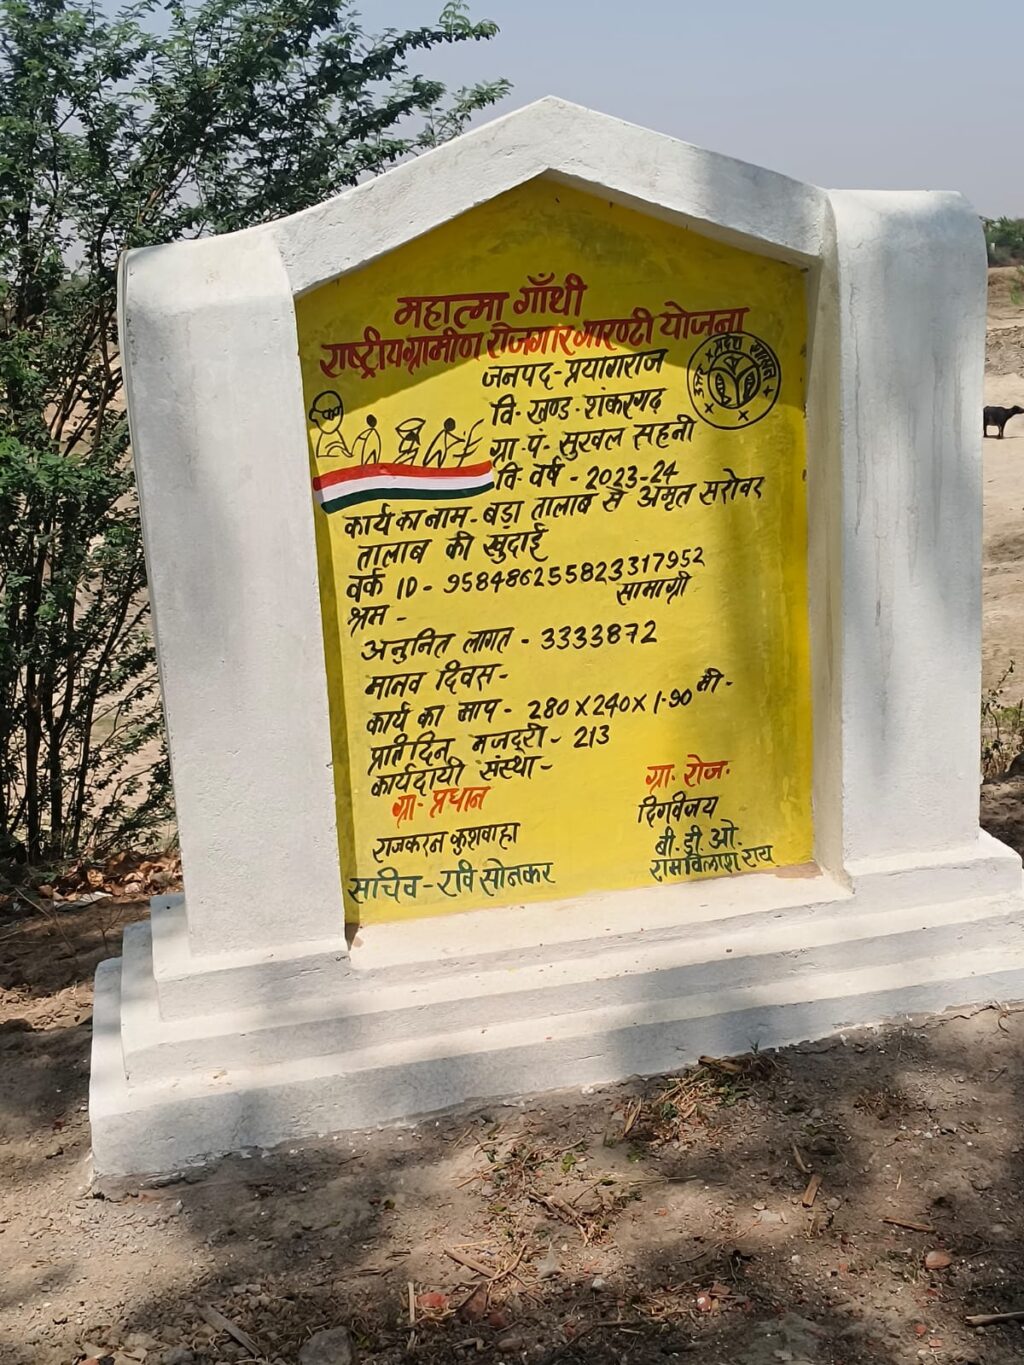 महात्मा गाँधी
राष्ट्रीय ग्रामीण रोजगार गारण्टी योजना
जनपद-प्रयागराज
वि-खण्ड-शंकरगढ़
ग्रा-पं-सुरवल सहनी
वि-वर्ष-2023-24
कार्य का नाम-बड़ा तालाब से अमृत सरोवर
तालाब की खुंदाई
वर्क ID-958486255823317952
श्रम- सामाग्री
अनुनित लागत-3333872
मानव दिवस-
कार्य का माप-280×240×1-90 मी-
प्रति दिन मजदूरी-213
कार्यदायी संस्था-
ग्रा-प्रधान
राजकरन कुशवाहा
सचिव-रवि सोनकर
ग्रा-रोज-
दिगविजय
बी.डी.ओ.
रामविलाश राय